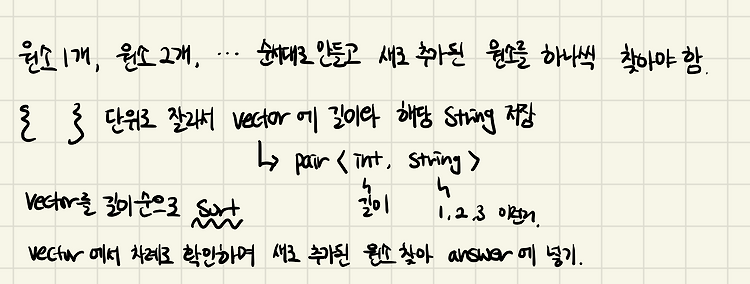 원소 1개, 원소 2개, ... 순서대로 만들고 새로 추가된 원소를 하나씩 찾아야 함.
{ } 단위로 잘라서 vector 에 길이와 해당 string 저장
↳ pair < int, string >
vector를 길이순으로 sort
길이
1, 2, 3 이런거.
vector 에서 차례로 확인하며 새로 추가된 원소 찾아 answer 에 넣기.